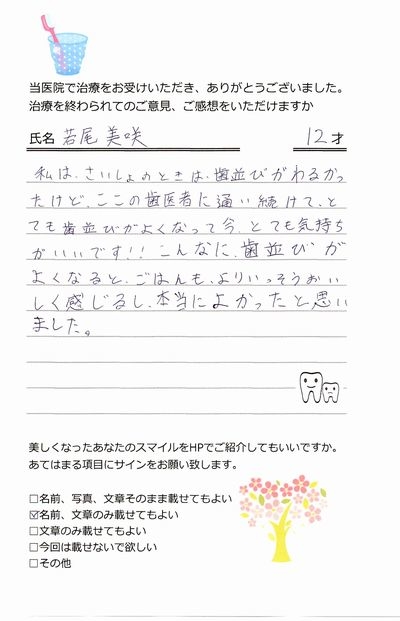 当医院で治療をお受けいただき、ありがとうございました。
治療を終わられてのご意見、ご感想をいただけますか
氏名 若尾 美咲 12才
私は、さいしょのときは、歯並びがわるかっ
たけど、ここの歯医者に通い続けて、と
ても歯並びがよくなって今、とても気持ち
がいいです!!こんなに、歯並びが
よくなると、ごはんも、よりいっそうおい
しく感じるし、本当によかったと思い
ました。
美しくなったあなたのスマイルをHPでご紹介してもいいですか。
あてはまる項目にサインをお願い致します。
□名前、写真、文章そのまま載せてもよい
☑名前、文章のみ載せてもよい
□文章のみ載せてもよい
□今回は載せないで欲しい
□その他